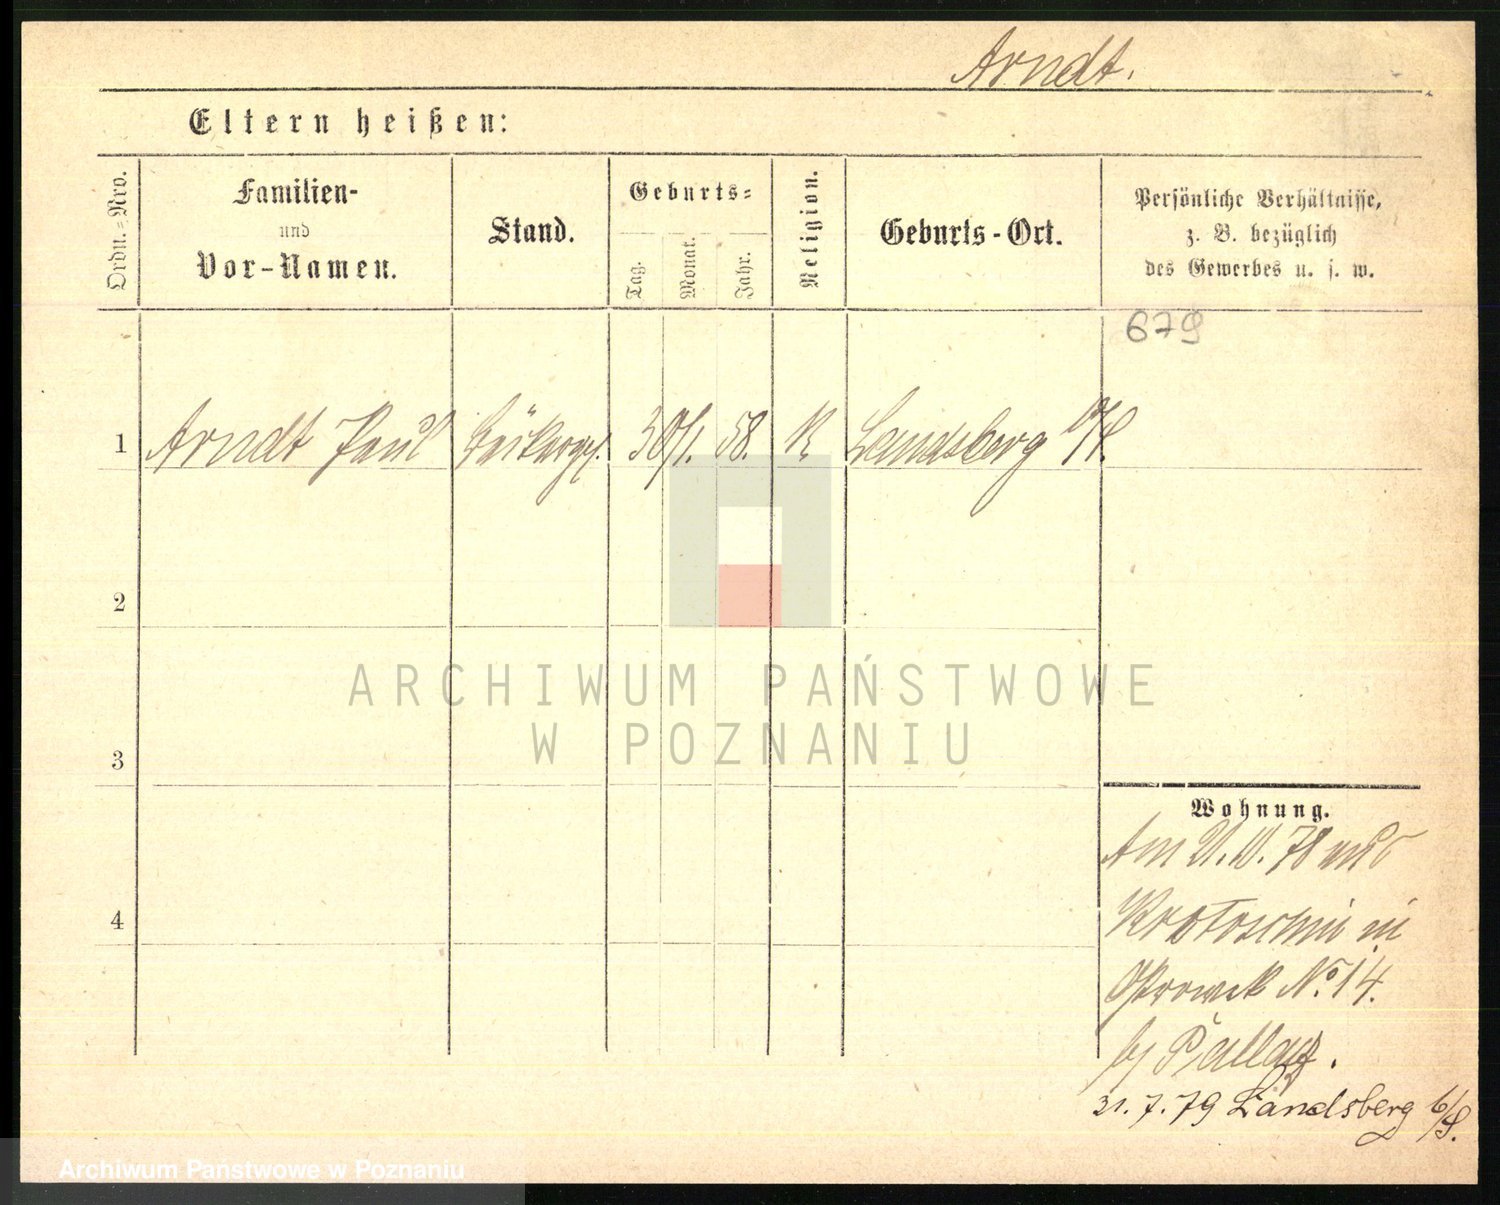 Arndt.
Eltern heißen:
Ordn.=Nro.
Familien-
und
Vor-Namen.
Stand.
Geburts=
Tag.
Monat.
Jahr.
Religion.
Geburts-Ort.
Persönliche Verhältnisse,
z. B. bezüglich
des Gewerbes u. s. w.
679
1 Arndt Paul 30/1. 58. K Landsberg
2
3
4
Wohnung.
Am 21.10.78 aus
Krotoschin in
Ostrowek No. 14.
by Pallag.
31.7.79 Landsberg
ARCHIWUM PAŃSTWOWE
W POZNANIU
Archiwum Państwowe w Poznaniu